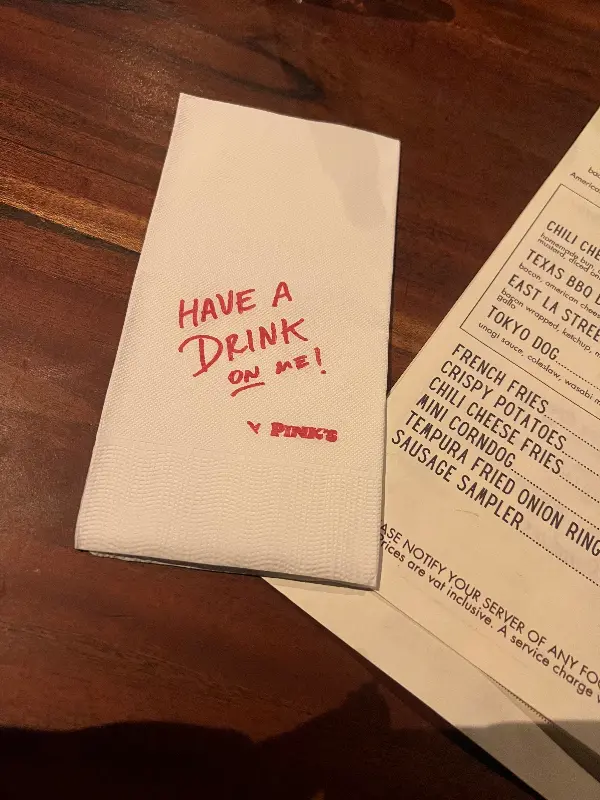 HAVE A
DRINK
ON ME!
PINK'S
America
CHILI CHE
homemade bun,
mustard, diced on
TEXAS BBQ D
bacon, american chees
EAST LA STREE
bacon wrapped, ketchup, m
gallo
TOKYO DOG
unagi sauce, coleslaw, wasabi m
FRENCH FRIES
CRISPY POTATOES
CHILI CHEESE FRIES
MINI CORNDOG
TEMPURA FRIED ONION RING
SAUSAGE SAMPLER
ASE NOTIFY YOUR SERVER OF ANY FOO
Prices are vat inclusive. A service charge